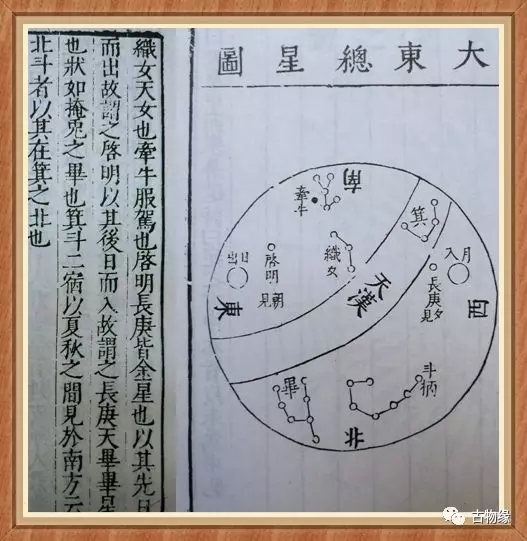 大東總星圖
南
牽牛
箕
織女
日出
啓明朝見
月入
長庚夕見
天漢
東
西
畢
斗柄
北
織女天女也牽牛服駕也啓明長庚皆金星也以其先日
而出故謂之啓明以其後日而入故謂之長庚天畢畢星
也狀如掩兎之畢也箕斗二宿以夏秋之間見於南方云
北斗者以其在箕之北也
古物缘